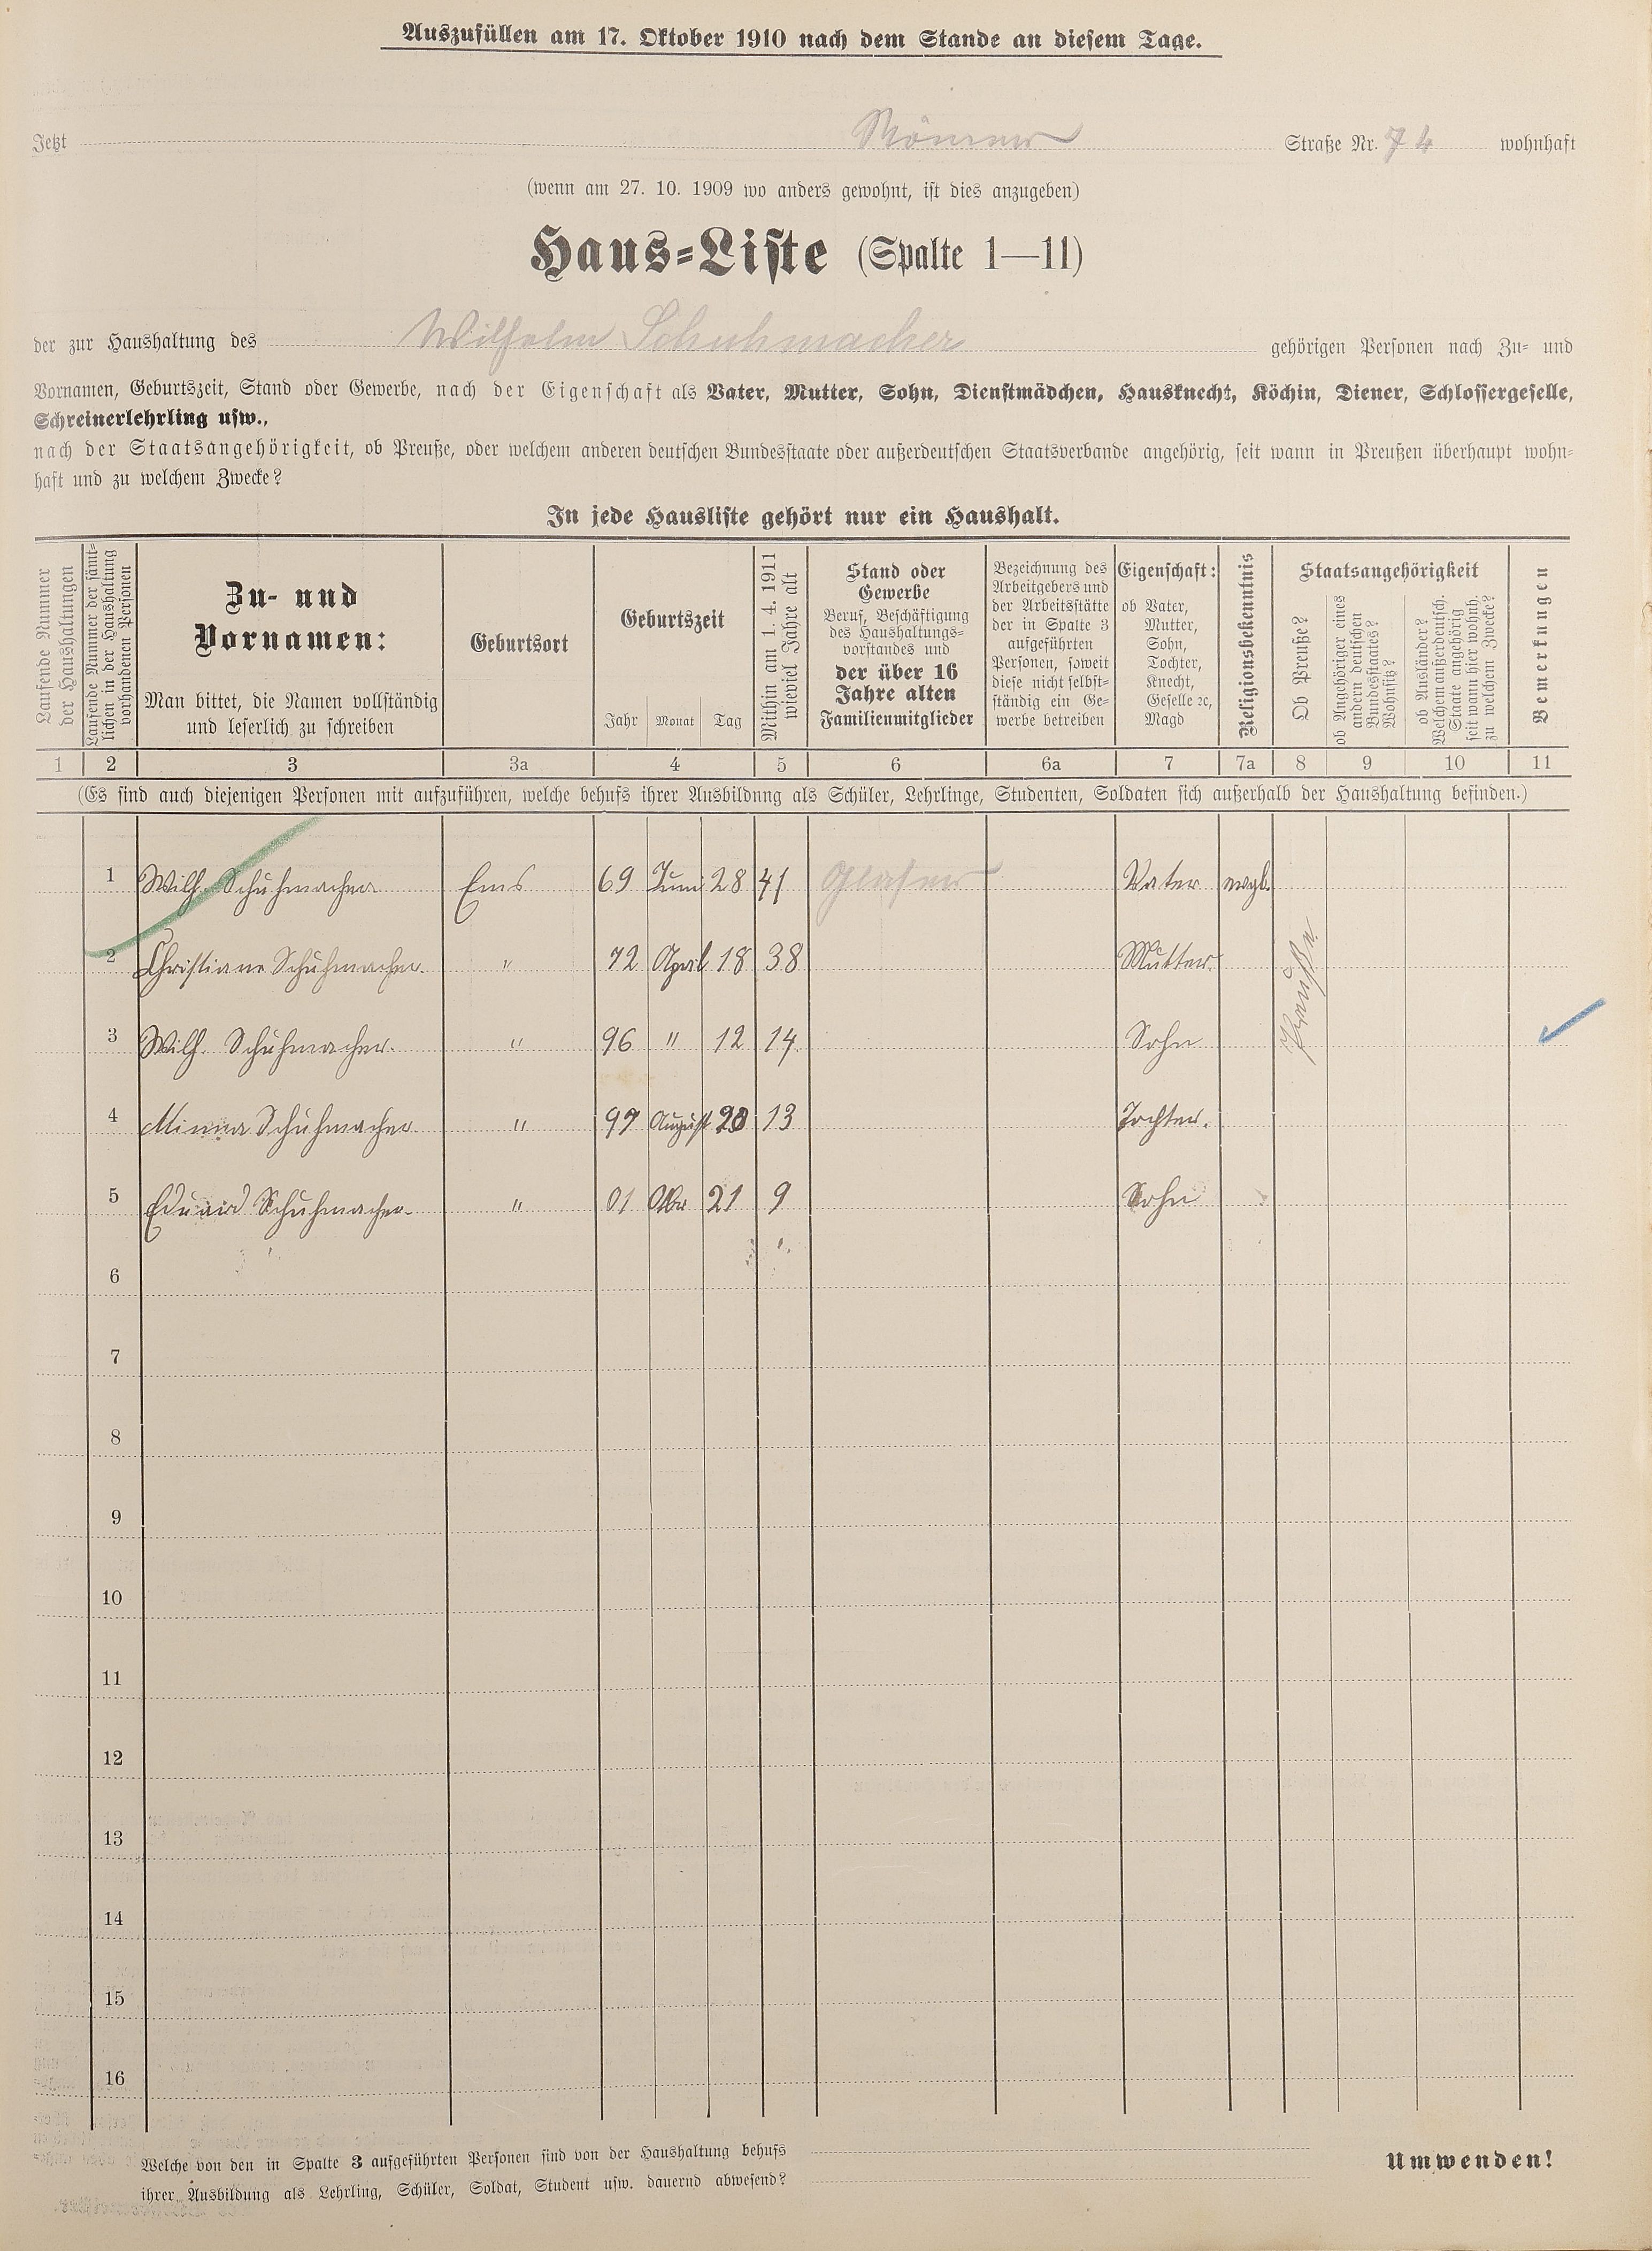 Auszufüllen am 17. Oktober 1910 nach dem Stande an diesem Tage.
Jetzt Römer Straße Nr. 74 wohnhaft
(wenn am 27. 10. 1909 wo anders gewohnt, ist dies anzugeben)
Haus-Liste (Spalte 1—11)
der zur Haushaltung des Wilhelm Schuhmacher gehörigen Personen nach Zu- und
Vornamen, Geburtszeit, Stand oder Gewerbe, nach der Eigenschaft als Vater, Mutter, Sohn, Dienstmädchen, Hausknecht, Köchin, Diener, Schlossergeselle,
Schreinerlehrling usw.,
nach der Staatsangehörigkeit, ob Preuße, oder welchem anderen deutschen Bundesstaate oder außerdeutschen Staatsverbande angehörig, seit wann in Preußen überhaupt wohn-
haft und zu welchem Zwecke?
In jede Hausliste gehört nur ein Haushalt.
Laufende Nummer
der Haushaltungen
Laufende Nummer der sämt-
lichen in der Haushaltung
vorhandenen Personen
Zu- und
Vornamen:
Man bittet, die Namen vollständig
und leserlich zu schreiben
Geburtsort
Geburtszeit
Jahr Monat Tag
Mithin am 1. 4. 1911
wieviel Jahre alt
Stand oder
Gewerbe
Beruf, Beschäftigung
des Haushaltungs-
vorstandes und
der über 16
Jahre alten
Familienmitglieder
Bezeichnung des
Arbeitgebers und
der Arbeitsstätte
der in Spalte 3
aufgeführten
Personen, soweit
diese nicht selbst-
ständig ein Ge-
werbe betreiben
Eigenschaft:
ob Vater,
Mutter,
Sohn,
Tochter,
Knecht,
Geselle ꝛc,
Magd
Religionsbekenntnis
Staatsangehörigkeit
Ob Preuße?
ob Angehöriger eines
andern deutschen
Bundesstaates?
Wohnsitz?
ob Ausländer?
Welchem außerdeutsch.
Staate angehörig
seit wann hier wohnh.
zu welchem Zwecke?
Bemerkungen
1 2 3 3a 4 5 6 6a 7 7a 8 9 10 11
(Es sind auch diejenigen Personen mit aufzuführen, welche behufs ihrer Ausbildung als Schüler, Lehrlinge, Studenten, Soldaten sich außerhalb der Haushaltung befinden.)
1 Wilh. Schuhmacher Ems 69 Juni 28 41 Glaser Vater evgl.
2 Christiane Schuhmacher. " 72 April 18 38 Mutter.
Preuße
3 Wilh. Schuhmacher. " 96 " 12 14 Sohn
4 Minna Schuhmacher " 97 August 20 13 Tochter.
5 Eduard Schuhmacher. " 01 21 9 Sohn
6
7
8
9
10
11
12
13
14
15
16
Welche von den in Spalte 3 aufgeführten Personen sind von der Haushaltung behufs
ihrer Ausbildung als Lehrling, Schüler, Soldat, Student usw. dauernd abwesend?
Umwenden!